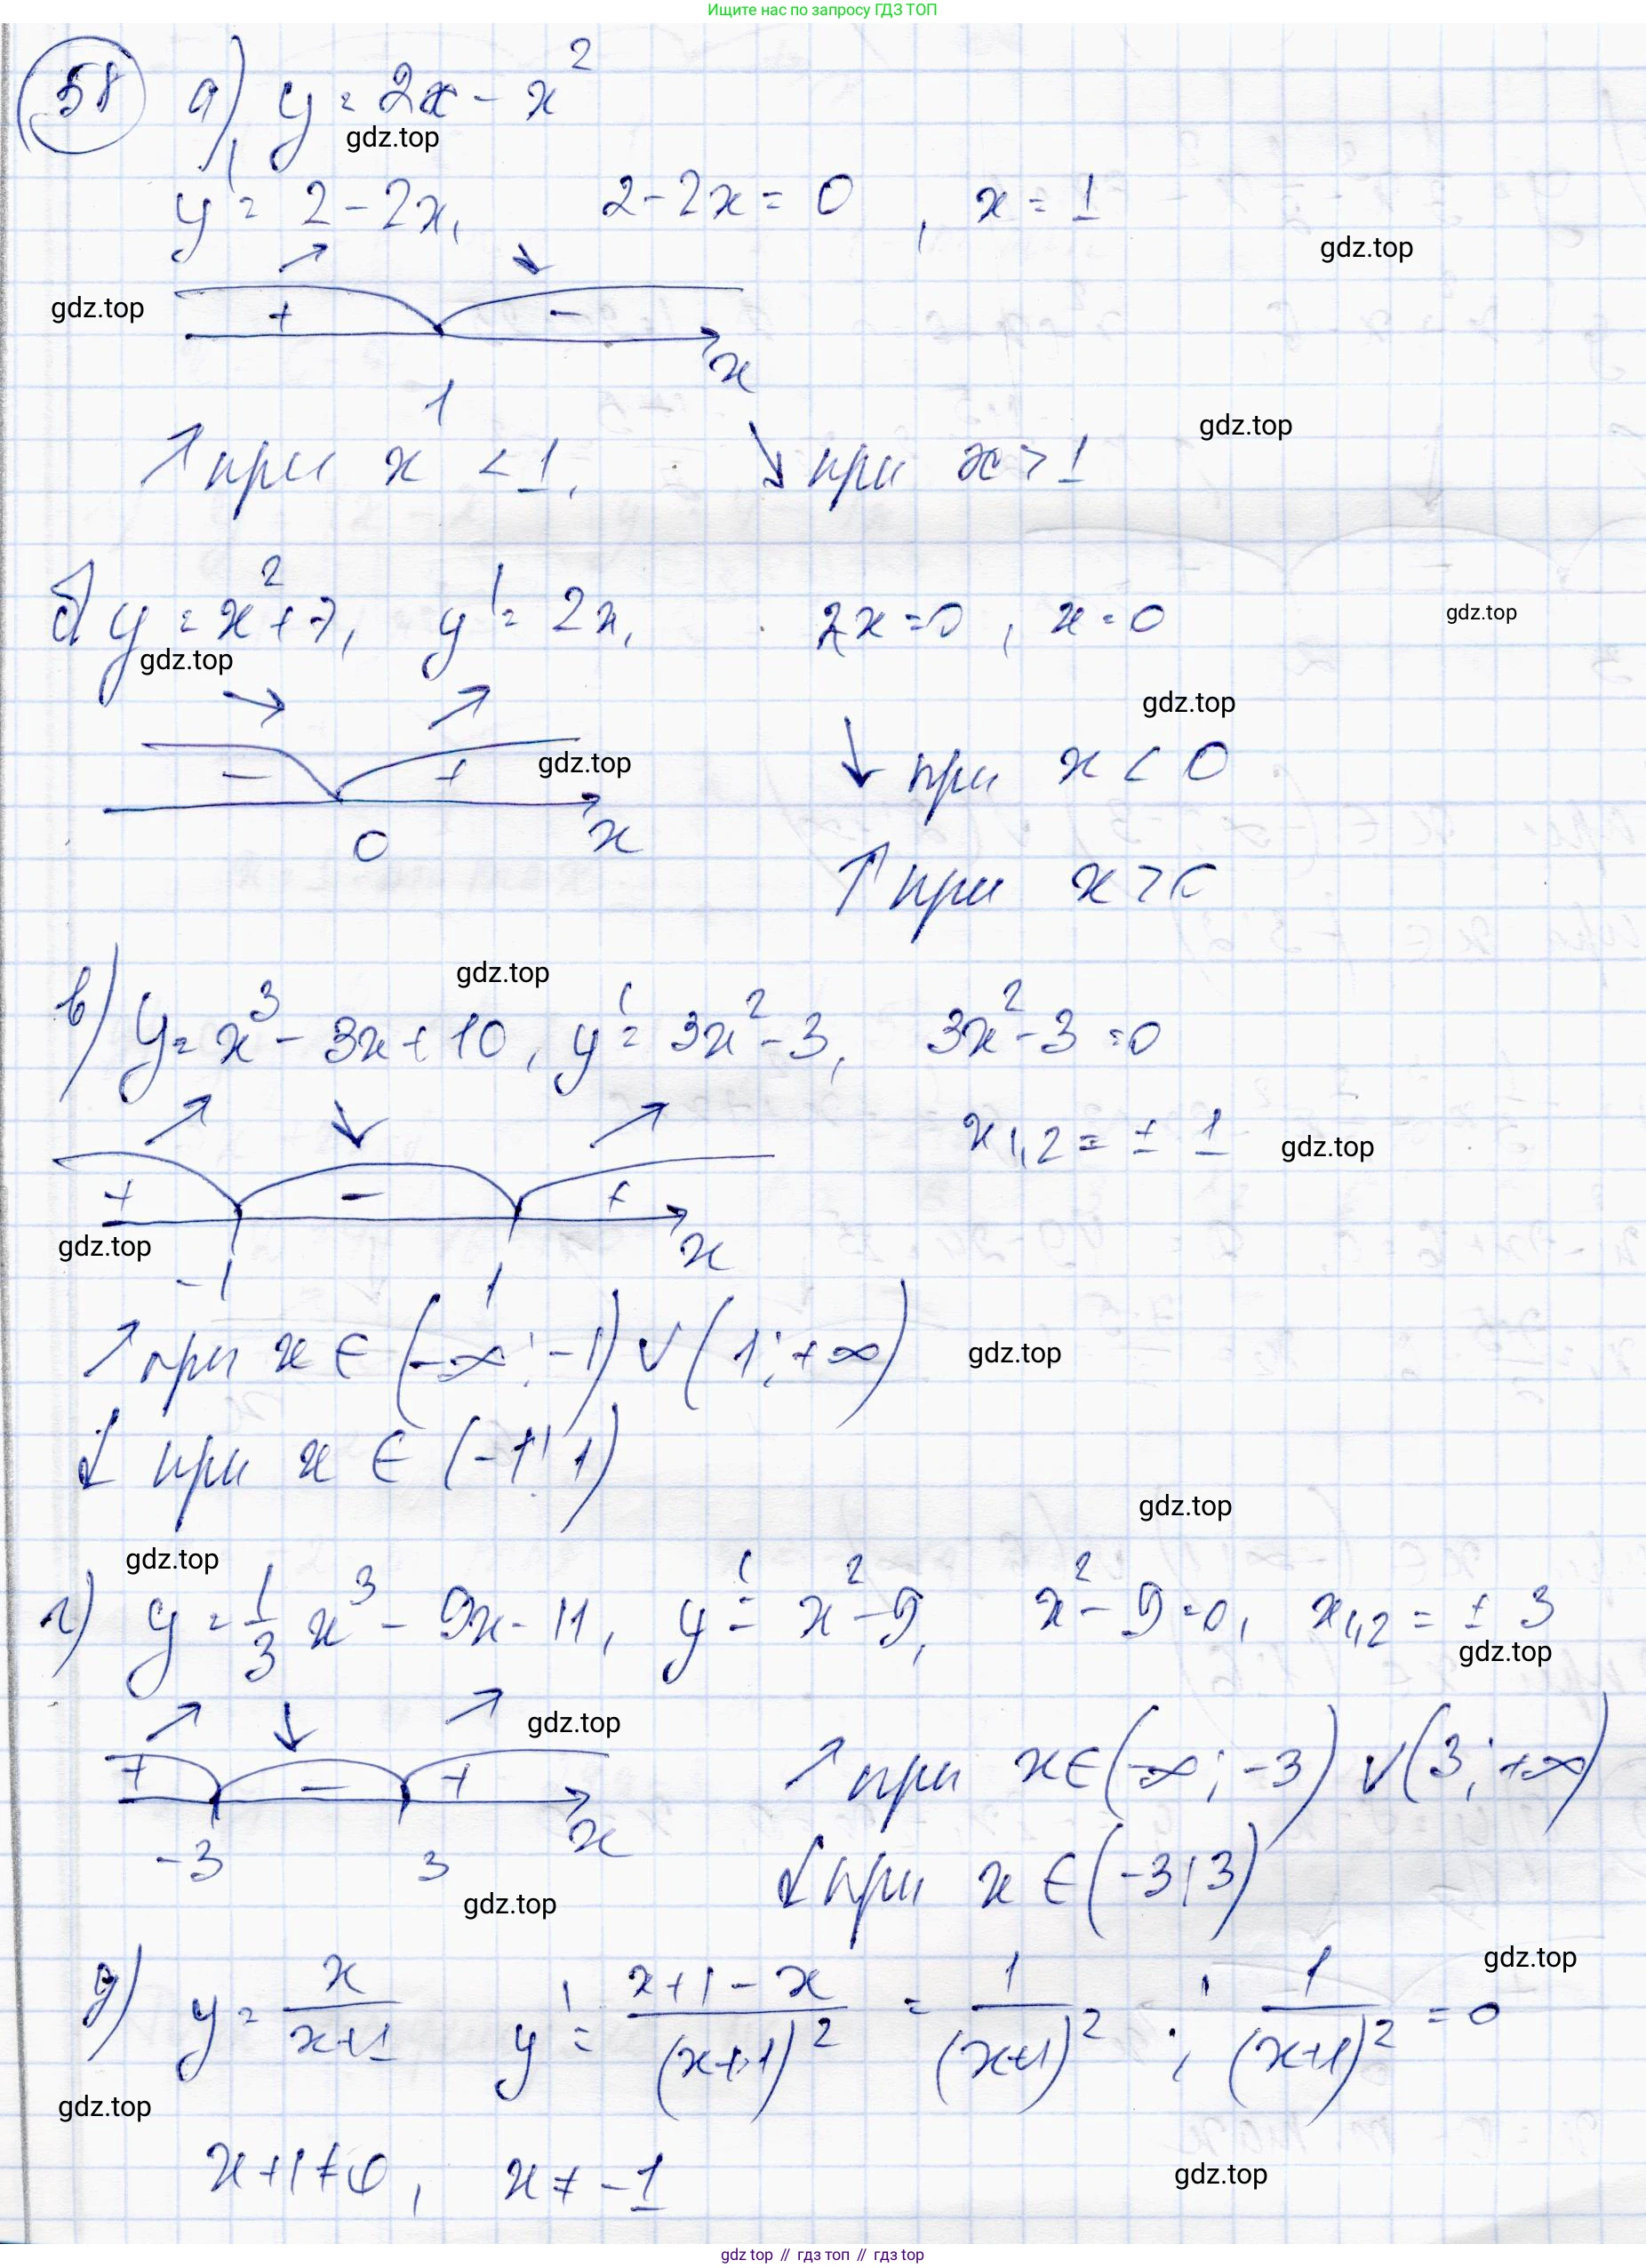 Ищите нас по запросу ГДЗ ТОП
58 а) y = 2x - x²
gdz.top
y' = 2 - 2x, 2 - 2x = 0, x = 1
gdz.top
gdz.top
+ -
x
1
gdz.top
↗ при x < 1, ↘ при x > 1
б) y = x² + 7, y' = 2x, 2x = 0, x = 0
gdz.top
gdz.top
gdz.top
- +
gdz.top
↓ при x < 0
0 x
↑ при x > 0
gdz.top
в) y = x³ - 3x + 10, y' = 3x² - 3, 3x² - 3 = 0
x1,2 = ± 1
gdz.top
+ - +
gdz.top
x
-1 1
↗ при x ∈ (-∞; -1) ∨ (1; +∞)
gdz.top
↓ при x ∈ (-1; 1)
gdz.top
gdz.top
г) y = 1/3 x³ - 9x - 11, y' = x² - 9, x² - 9 = 0, x1,2 = ± 3
gdz.top
gdz.top
+ - +
↗ при x ∈ (-∞; -3) ∨ (3; +∞)
x
-3 3
↓ при x ∈ (-3; 3)
gdz.top
gdz.top
д) y = x/(x+1) y' = (x+1-x)/(x+1)² = 1/(x+1)²; 1/(x+1)² = 0
gdz.top
x+1 ≠ 0, x ≠ -1
gdz.top
gdz top // гдз топ // гдз top